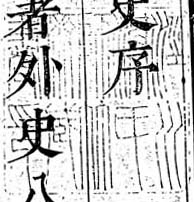 史序
者外史